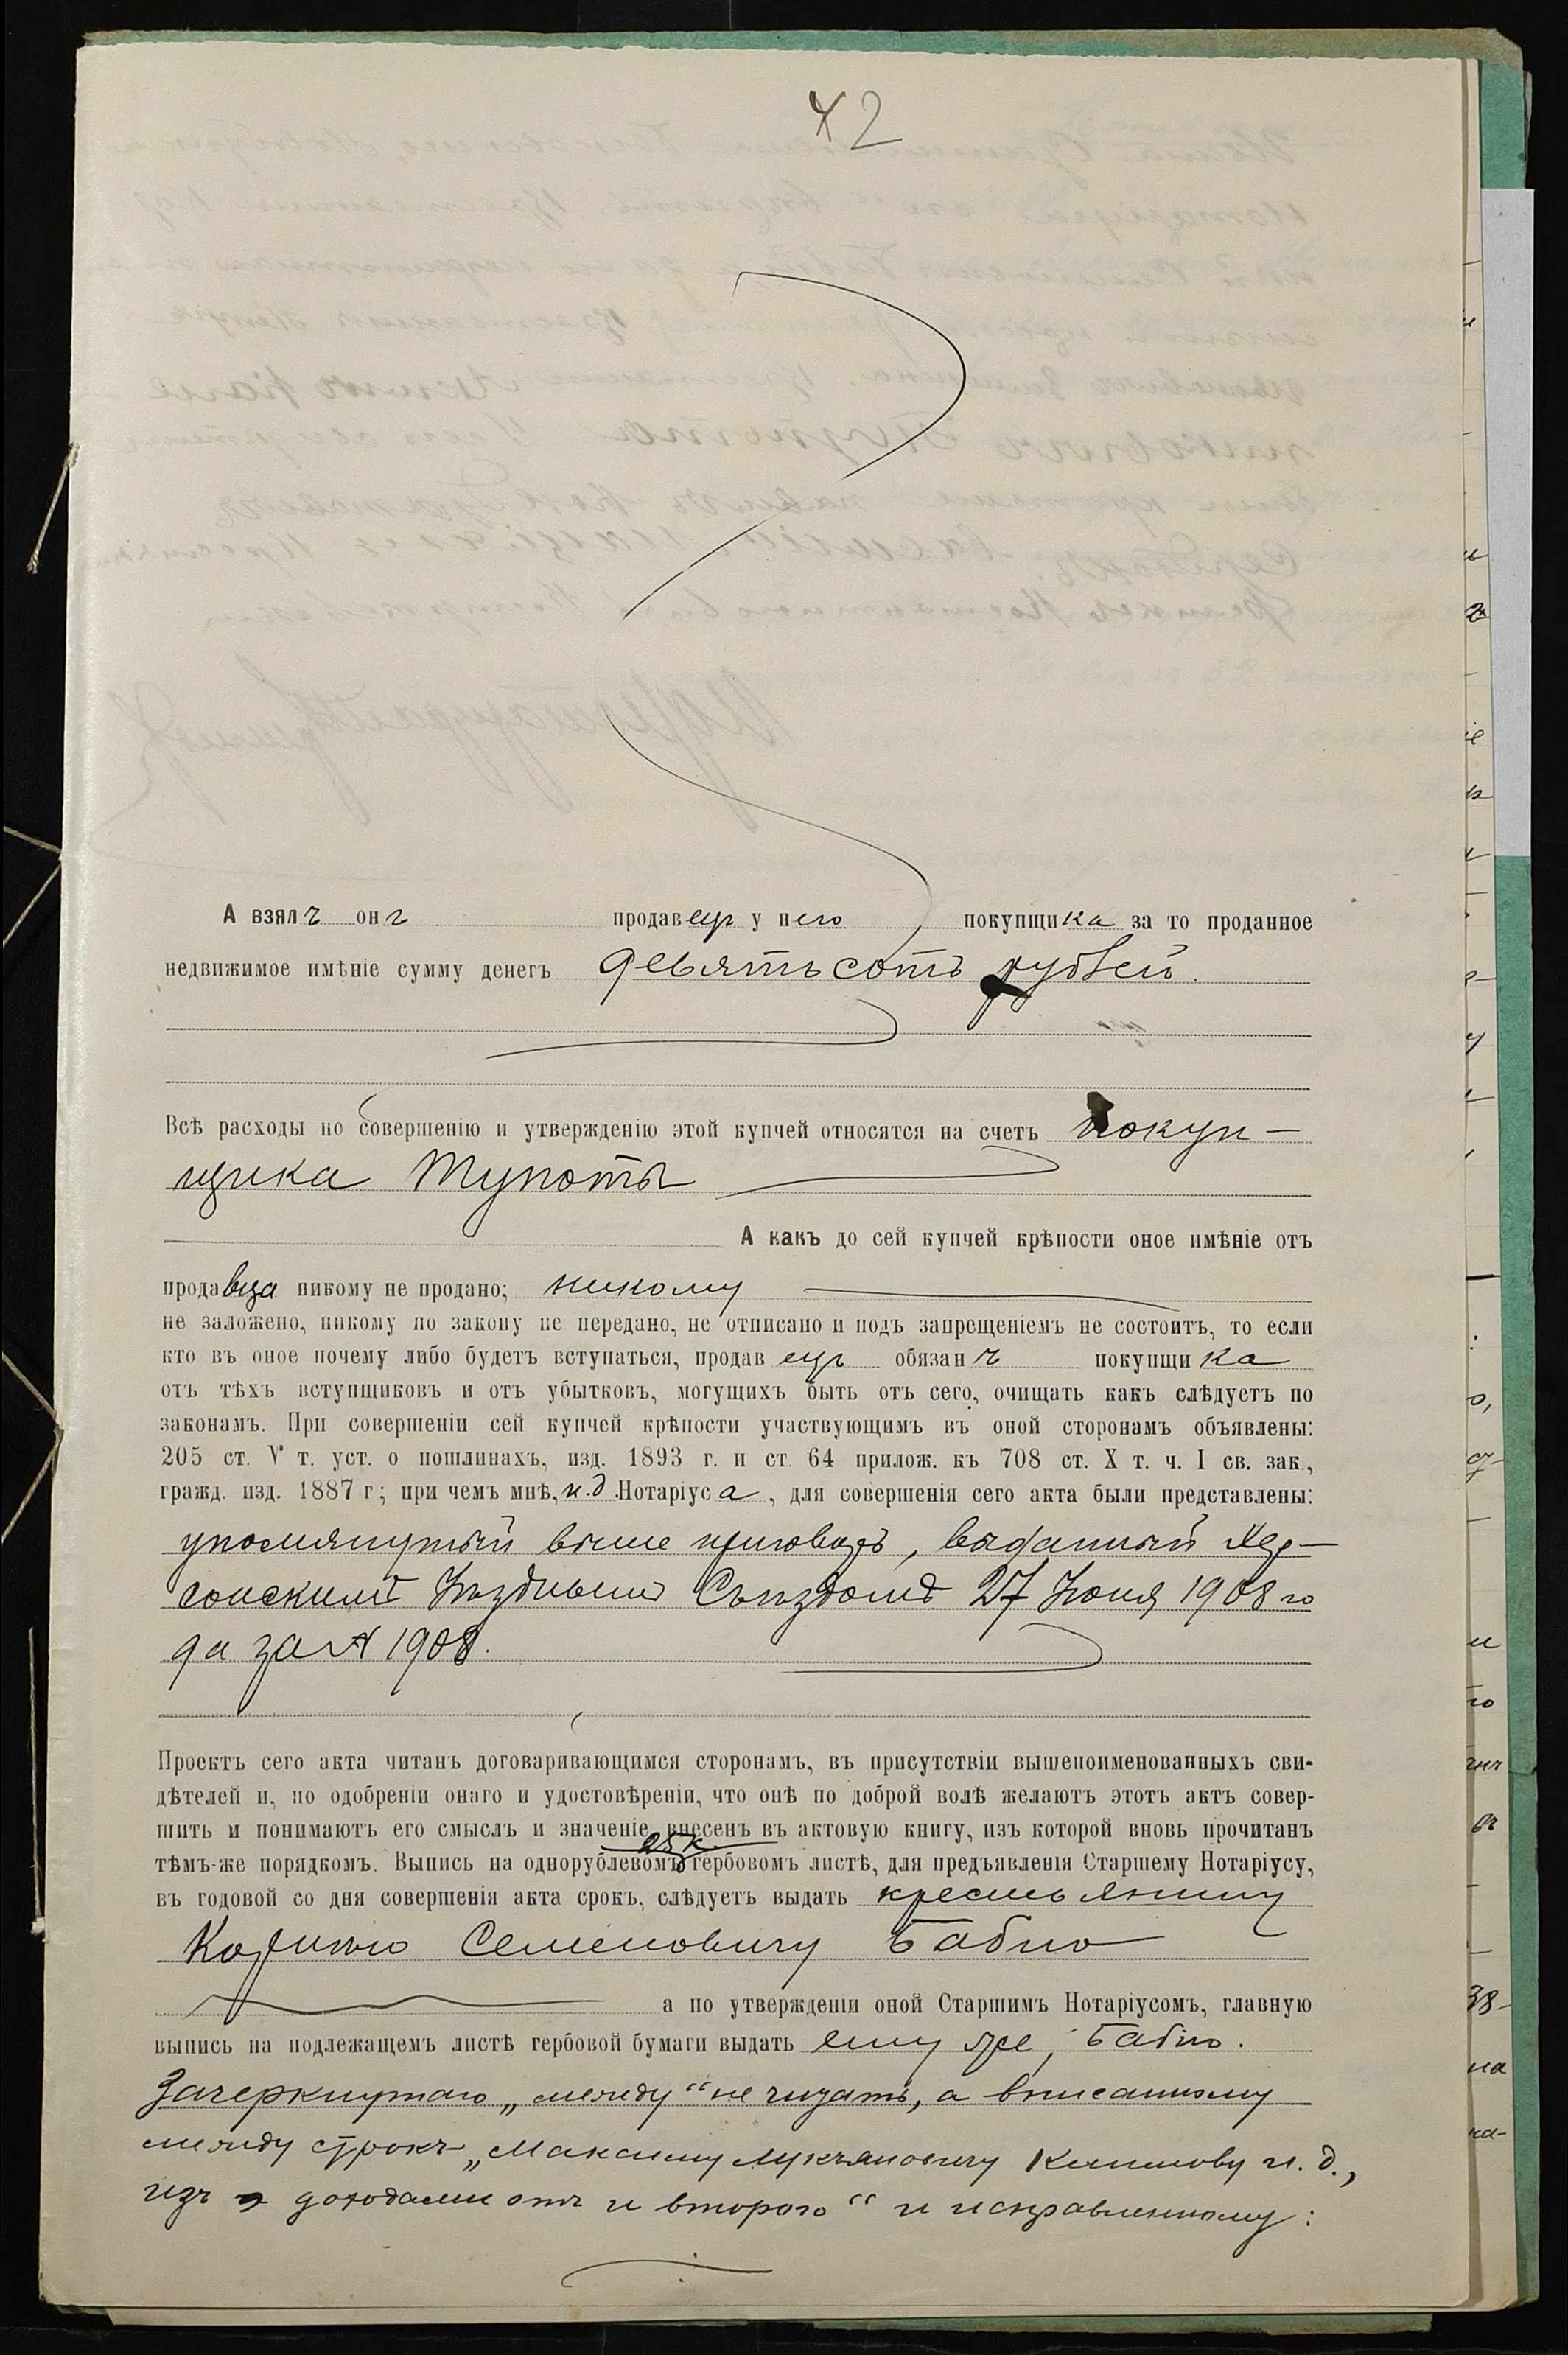 42
А взялъ онъ продавецъ у него покупщика за то проданное
недвижимое имѣніе сумму денегъ девятьсотъ рублей.
Всѣ расходы по совершенію и утвержденію этой купчей относятся на счетъ покуп-
щика Тупоты
А какъ до сей купчей крѣпости оное имѣніе отъ
продавца никому не продано; никому
не заложено, никому по закону не передано, не отписано и подъ запрещеніемъ не состоитъ, то если
кто въ оное почему либо будетъ вступаться, продавецъ обязанъ покупщика
отъ тѣхъ вступщиковъ и отъ убытковъ, могущихъ быть отъ сего, очищать какъ слѣдуетъ по
законамъ. При совершеніи сей купчей крѣпости участвующимъ въ оной сторонамъ объявлены:
205 ст. V т. уст. о пошлинахъ, изд. 1893 г. и ст. 64 прилож. къ 708 ст. X т. ч. I св. зак.,
гражд. изд. 1887 г; при чемъ мнѣ, и.д. Нотаріуса, для совершенія сего акта были представлены:
упомянутый выше приговоръ, выданный Хер-
сонскимъ Уѣзднымъ Съѣздомъ 27 Іюня 1908 го
да за № 1908.
Проектъ сего акта читанъ договаривающимся сторонамъ, въ присутствіи вышепоименованныхъ сви-
дѣтелей и, по одобреніи онаго и удостовѣреніи, что онѣ по доброй волѣ желаютъ этотъ актъ совер-
шить и понимаютъ его смыслъ и значеніе внесенъ въ актовую книгу, изъ которой вновь прочитанъ
тѣмъ-же порядкомъ. Выпись на однорублевомъ гербовомъ листѣ, для предъявленія Старшему Нотаріусу,
въ годовой со дня совершенія акта срокъ, слѣдуетъ выдать крестьянину
Семеновичу Бабію
а по утвержденіи оной Старшимъ Нотаріусомъ, главную
выпись на подлежащемъ листѣ гербовой бумаги выдать ему же, Бабію.
Зачеркнутаго „между“ не читать, а вписанному
между строкъ „Максиму Лукьяновичу Климову и. д.,
изъ доходами отъ и второго“ и исправленному: